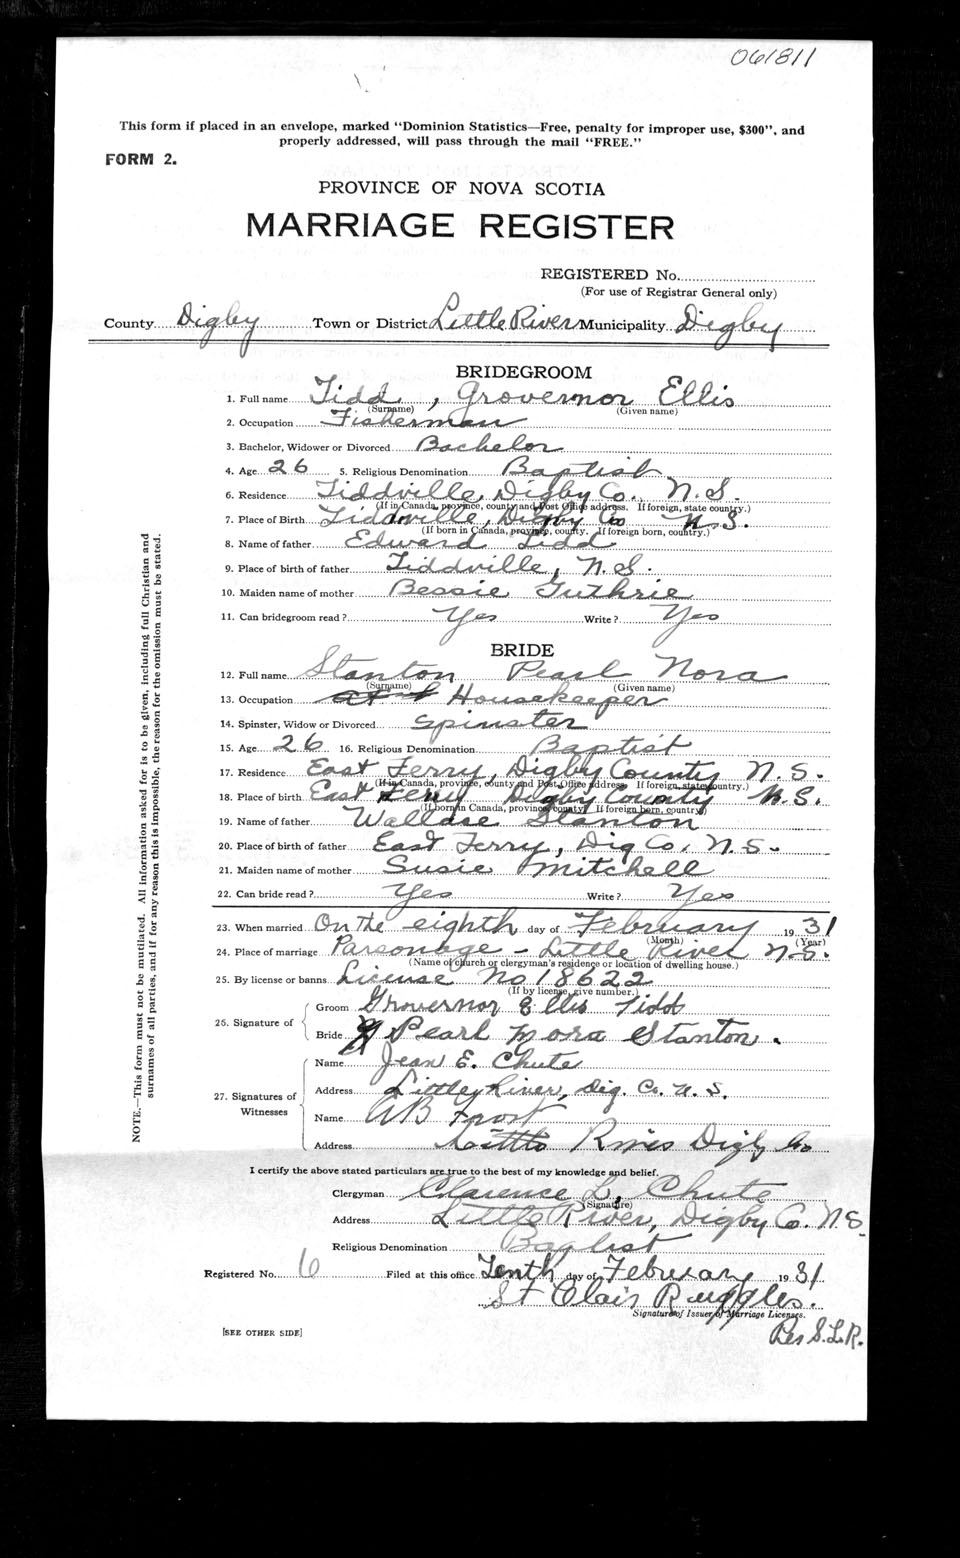 061811
This form if placed in an envelope, marked "Dominion Statistics—Free, penalty for improper use, $300", and
properly addressed, will pass through the mail "FREE."
FORM 2.
PROVINCE OF NOVA SCOTIA
MARRIAGE REGISTER
REGISTERED No.
(For use of Registrar General only)
County Digby Town or District Little River Municipality Digby
BRIDEGROOM
1. Full name Tidd, Grovernor Ellis
(Surname) (Given name)
2. Occupation Fisherman
3. Bachelor, Widower or Divorced Bachelor
4. Age 26 5. Religious Denomination Baptist
6. Residence Tiddville, Digby Co., N.S.
(If in Canada, province, county and Post Office address. If foreign, state country.)
7. Place of Birth Tiddville, Digby Co N.S.
(If born in Canada, province, county. If foreign born, country.)
8. Name of father Edward Tidd
9. Place of birth of father Tiddville, N.S.
10. Maiden name of mother Bessie Guthrie
11. Can bridegroom read? Yes Write? Yes
BRIDE
12. Full name Stanton Pearl Nora
(Surname) (Given name)
13. Occupation Housekeeper
14. Spinster, Widow or Divorced Spinster
15. Age 26 16. Religious Denomination Baptist
17. Residence East Ferry, Digby County N.S.
(If in Canada, province, county and Post Office address. If foreign, state country.)
18. Place of birth East Ferry Digby County N.S.
(If born in Canada, province, county. If foreign born, country.)
19. Name of father Wallace Stanton
20. Place of birth of father East Ferry, Dig Co, N.S.
21. Maiden name of mother Susie Mitchell
22. Can bride read? Yes Write? Yes
23. When married On the eighth day of February 1931
(Month) (Year)
24. Place of marriage Parsonage - Little River N.S.
(Name of church or clergyman's residence or location of dwelling house.)
25. By license or banns License No 18622
(If by license, give number.)
26. Signature of
Groom Grovernor Ellis Tidd
Bride Pearl Nora Stanton.
27. Signatures of Witnesses
Name Jean E. Chute
Address Little River, Dig. Co. N.S.
Name AB Frost
Address Little River Digby Co
I certify the above stated particulars are true to the best of my knowledge and belief.
Clergyman Clarence L. Chute
(Signature)
Address Little River, Digby Co. N.S.
Religious Denomination Baptist
Registered No. 6 Filed at this office Tenth day of February 1931.
St Clair Ruggles.
Signature of Issuer of Marriage Licenses.
Per S.L.R.
[SEE OTHER SIDE]
NOTE.—This form must not be mutilated. All information asked for is to be given, including full Christian and
surnames of all parties, and if for any reason this is impossible, the reason for the omission must be stated.